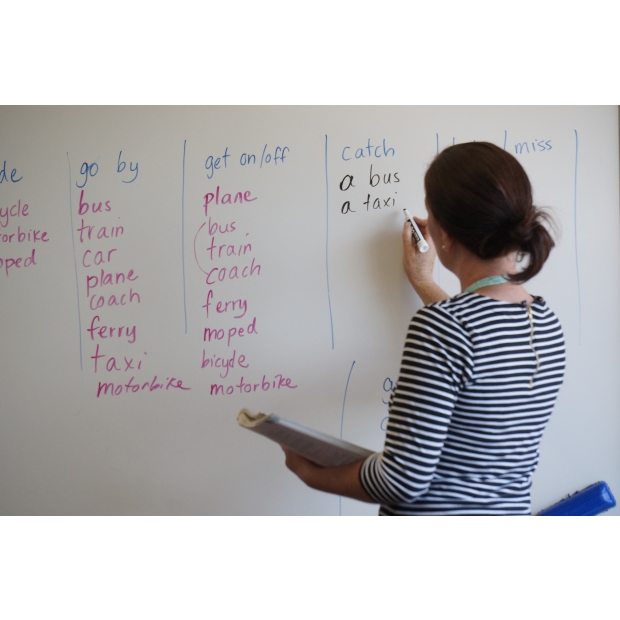 de
ycle
orbike
oped
go by
bus
train
car
plane
coach
ferry
taxi
motorbike
get on/off
plane
bus
train
coach
ferry
moped
bicycle
motorbike
catch
a bus
a taxi
miss